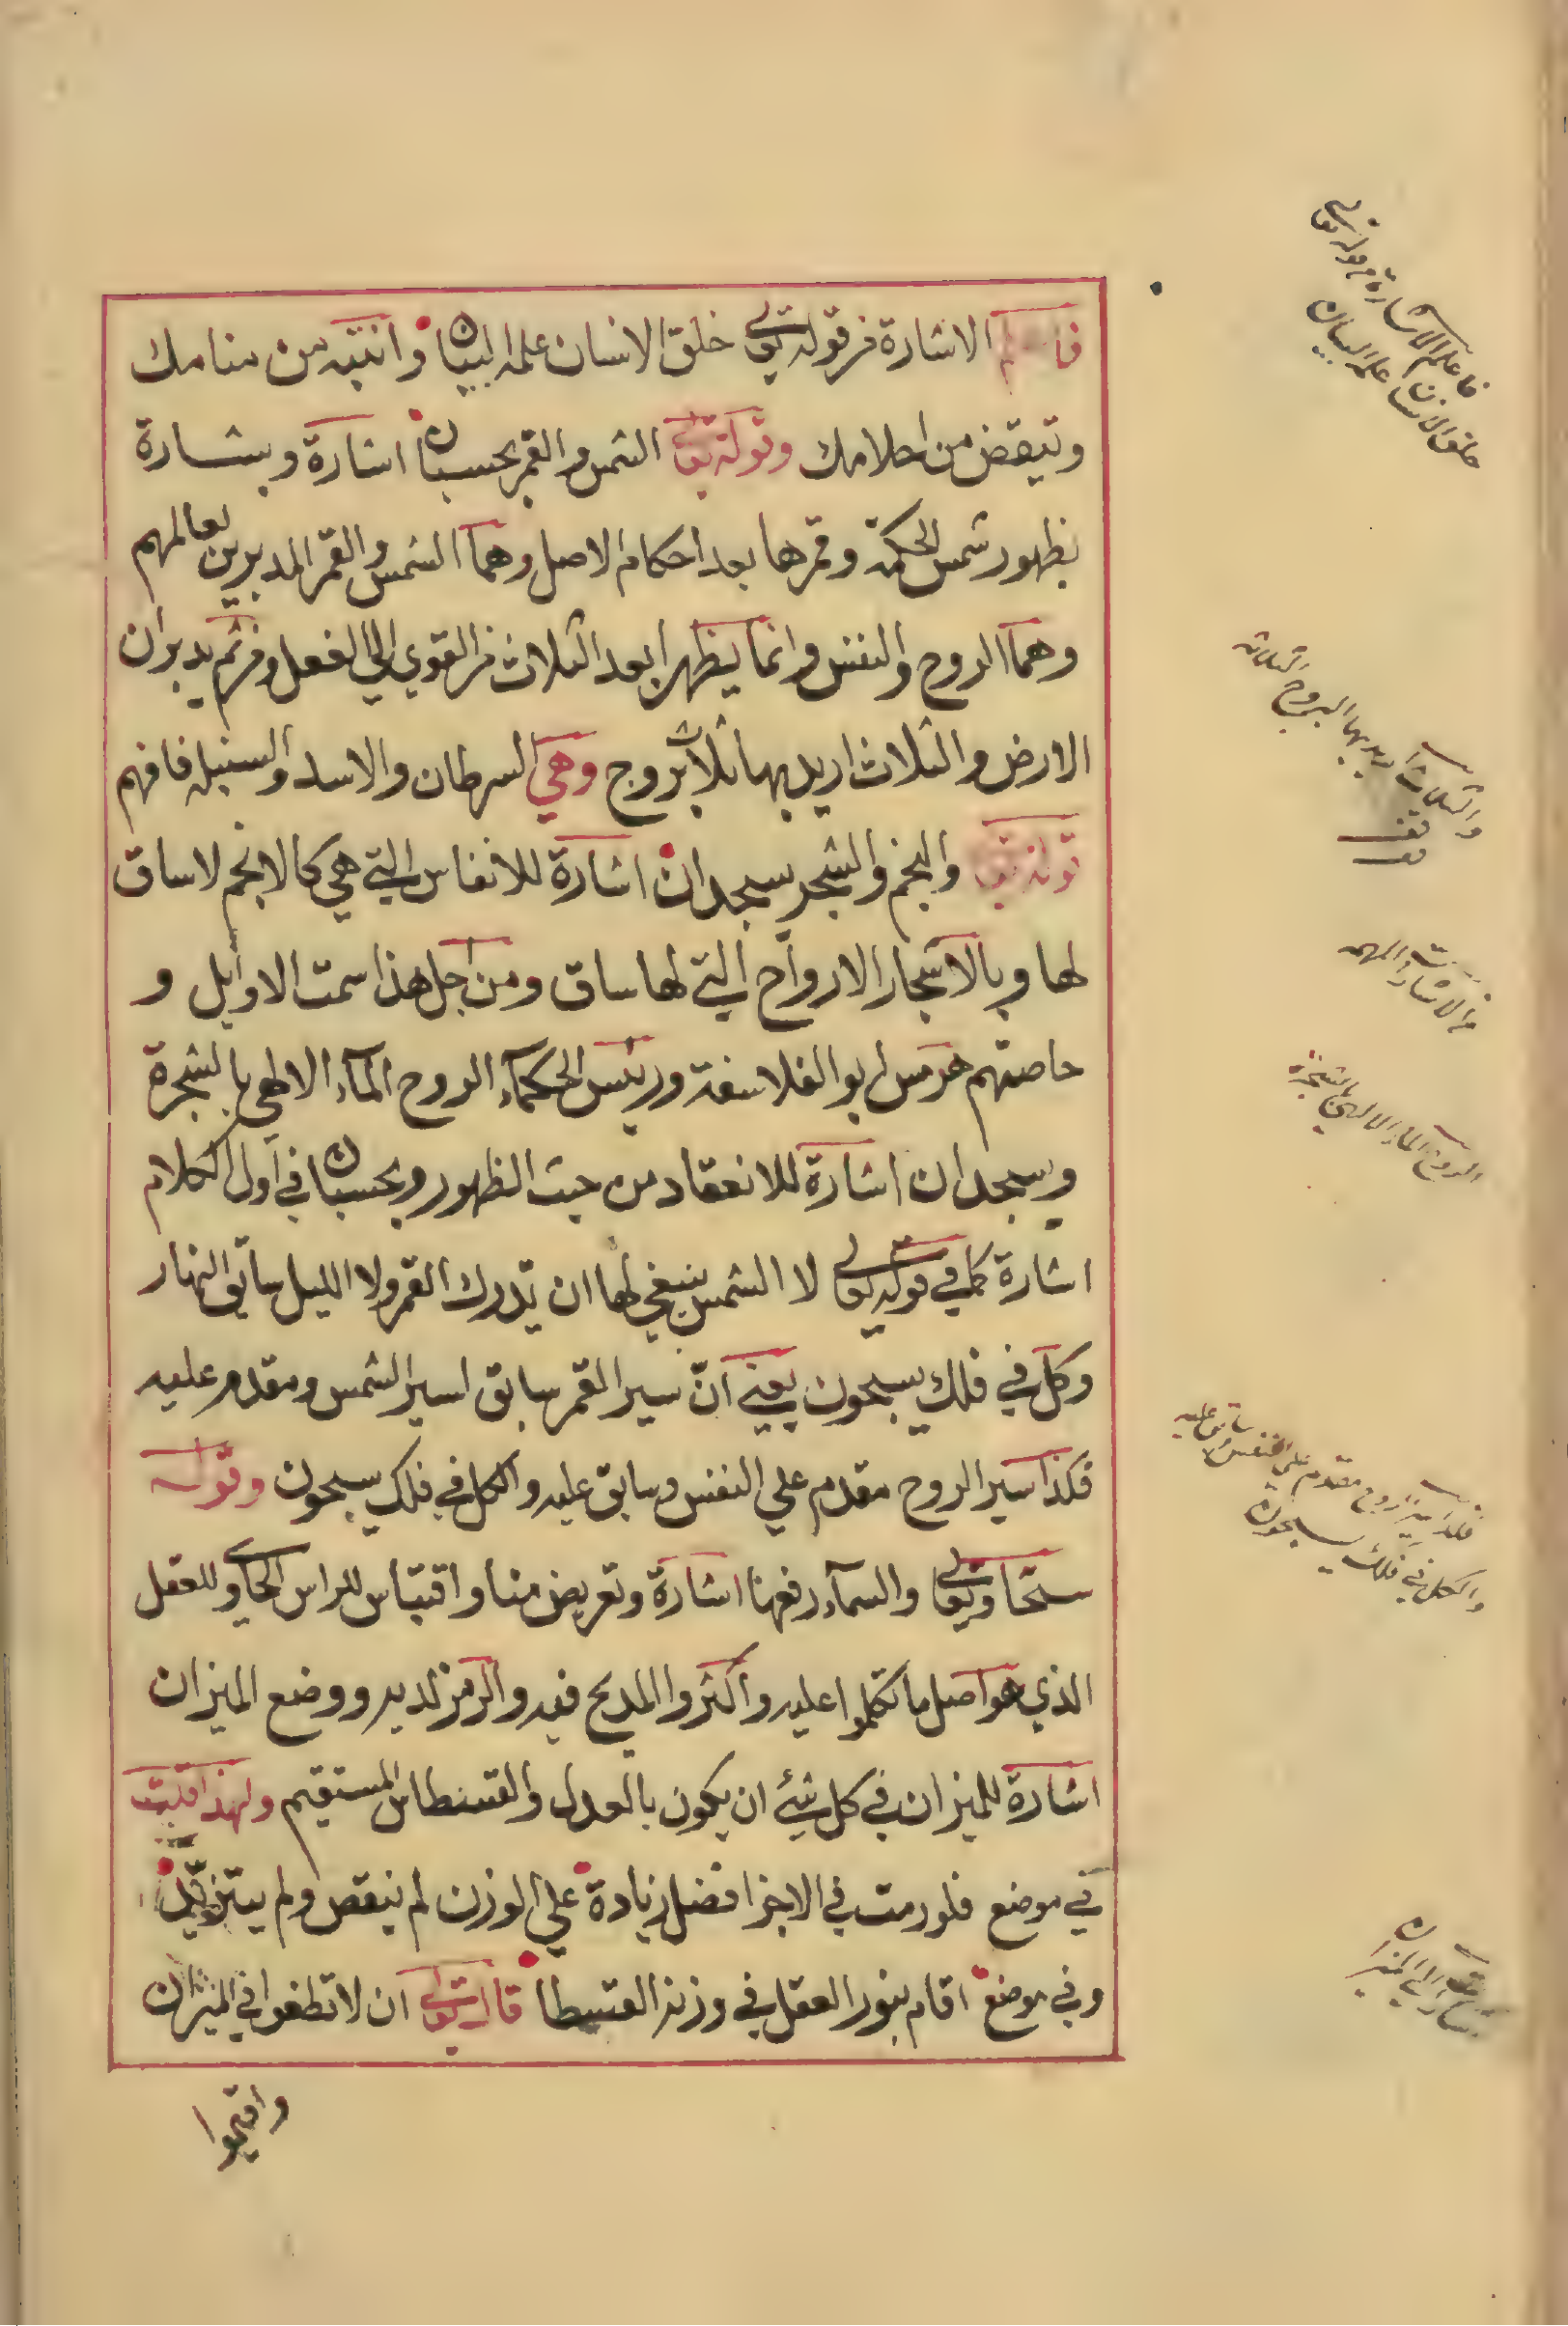 فاعلم الاشارة من قوله تعالى خلق الانسان علمه البيان وانتبه من منامك
وتيقض من احلامك وقوله تعالى الشمس والقمر بحسبان اشارة وبشارة
بظهور شمس الحكمة وقمرها بعد احكام الاصل وهما الشمس والقمر المدبرين لعالمهم
وهما الروح والنفس وانما يظهرا بعد الثلاث من القوي الي الفعل ومن ثم يدبران
الارض والثلاث اريد بها ثلاث بروج وهي السرطان والاسد والسنبله فافهم
قوله تعالى والنجم والشجر يسجدان اشارة للانفاس التي هي كالانجم لاساق
لها وبالاشجار الارواح التي لها ساق ومن اجل هذا سمت الاوايل و
خاصتهم هرمس ابو الفلاسفة ورئيس الحكمآء الروح المآء الالهي بالشجرة
ويسجدان اشارة للانعقاد من حيث الظهور وبحسبان في اول الكلام
اشارة كما في قوله تعالى لا الشمس ينبغي لها ان تدرك القمر ولا الليل سابق النهار
وكل في فلك يسبحون يعني ان سير القمر سابق لسير الشمس ومقدم عليه
فكذا سير الروح مقدم علي النفس وسابق عليه والكل في فلك يسبحون وقوله
سبحانه وتعالى والسمآء رفعها اشارة وتعريض منا واقتباس للراس الحاوي للعقل
الذي هو اصل ما تكلموا عليه واكثروا المديح فيه والرمز لديه ووضع الميزان
اشارة للميزان في كل شئ ان يكون بالعدل والقسطاس المستقيم ولهذا قلت
في موضع فلو رمت في الاجزا فضل زيادة علي الوزن لم ينقص ولم يتزيل
وفي موضع اقام بنور العقل في وزنه القسطا قال تعالى ان لا تطغوا في الميزان
واقيموا
فاعلم الاشارة من قوله تعالى
خلق الانسان علمه البيان
والثلاث اريد بها البروج الثلاثه
قف
الروح الماء الالهي بالشجرة
فكذا سير الروح مقدم علي النفس سابق عليه
والكل في فلك يسبحون